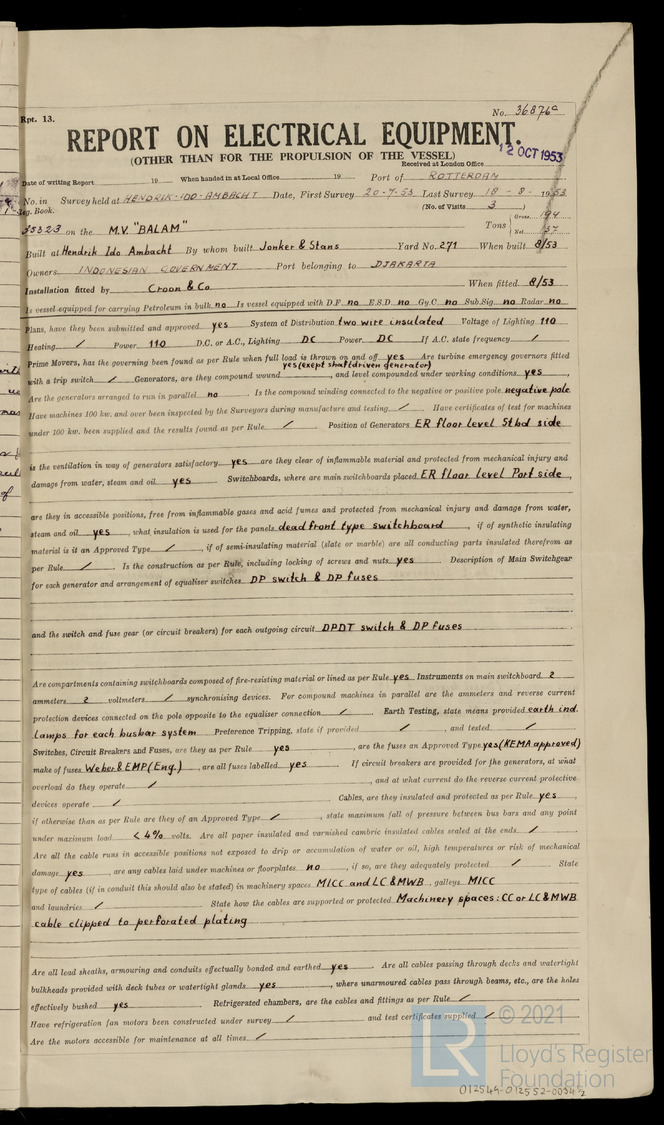 Rpt. 13.
No. 36876a
REPORT ON ELECTRICAL EQUIPMENT.
(OTHER THAN FOR THE PROPULSION OF THE VESSEL)
Received at London Office 12 OCT 1953
Date of writing Report 19 When handed in at Local Office 19 Port of ROTTERDAM
No. in Survey held at HENDRIK-IDO-AMBACHT Date, First Survey 20-7-53 Last Survey 18-8-1953
Reg. Book. (No. of Visits 3)
35323 on the M.V. "BALAM" Tons Gross 194 Net 137
Built at Hendrik Ido Ambacht By whom built Jonker & Stans Yard No. 271 When built 8/53
Owners INDONESIAN GOVERNMENT Port belonging to DJAKARTA
Installation fitted by Croon & Co When fitted 8/53
Is vessel equipped for carrying Petroleum in bulk no Is vessel equipped with D.F. no E.S.D. no Gy.C. no Sub.Sig. no Radar no
Plans, have they been submitted and approved yes System of Distribution two wire insulated Voltage of Lighting 110
Heating / Power 110 D.C. or A.C., Lighting DC Power DC If A.C. state frequency /
Prime Movers, has the governing been found as per Rule when full load is thrown on and off yes Are turbine emergency governors fitted
with a trip switch / Generators, are they compound wound yes (exept shaftdriven generator), and level compounded under working conditions yes,
Are the generators arranged to run in parallel no Is the compound winding connected to the negative or positive pole negative pole
Have machines 100 kw. and over been inspected by the Surveyors during manufacture and testing / Have certificates of test for machines
under 100 kw. been supplied and the results found as per Rule / Position of Generators ER floor level Stbd side
is the ventilation in way of generators satisfactory yes are they clear of inflammable material and protected from mechanical injury and
damage from water, steam and oil yes Switchboards, where are main switchboards placed ER floor level Port side,
are they in accessible positions, free from inflammable gases and acid fumes and protected from mechanical injury and damage from water,
steam and oil yes, what insulation is used for the panels dead front type switchboard, if of synthetic insulating
material is it an Approved Type /, if of semi-insulating material (slate or marble) are all conducting parts insulated therefrom as
per Rule / Is the construction as per Rule, including locking of screws and nuts yes Description of Main Switchgear
for each generator and arrangement of equaliser switches DP switch & DP fuses
and the switch and fuse gear (or circuit breakers) for each outgoing circuit DPDT switch & DP fuses
Are compartments containing switchboards composed of fire-resisting material or lined as per Rule yes Instruments on main switchboard 2
ammeters 2 voltmeters / synchronising devices. For compound machines in parallel are the ammeters and reverse current
protection devices connected on the pole opposite to the equaliser connection / Earth Testing, state means provided earth ind.
lamps for each busbar system Preference Tripping, state if provided /, and tested /
Switches, Circuit Breakers and Fuses, are they as per Rule yes, are the fuses an Approved Type yes (KEMA approved)
make of fuses Weber & EMP (Eng.), are all fuses labelled yes If circuit breakers are provided for the generators, at what
overload do they operate /, and at what current do the reverse current protective
devices operate / Cables, are they insulated and protected as per Rule yes,
if otherwise than as per Rule are they of an Approved Type /, state maximum fall of pressure between bus bars and any point
under maximum load < 4% volts. Are all paper insulated and varnished cambric insulated cables sealed at the ends /
Are all the cable runs in accessible positions not exposed to drip or accumulation of water or oil, high temperatures or risk of mechanical
damage yes, are any cables laid under machines or floorplates no, if so, are they adequately protected / State
type of cables (if in conduit this should also be stated) in machinery spaces MICC and LC & MWB, galleys MICC
and laundries / State how the cables are supported or protected Machinery spaces: CC or LC & MWB
cable clipped to perforated plating
Are all lead sheaths, armouring and conduits effectually bonded and earthed yes Are all cables passing through decks and watertight
bulkheads provided with deck tubes or watertight glands yes, where unarmoured cables pass through beams, etc., are the holes
effectively bushed yes Refrigerated chambers, are the cables and fittings as per Rule /
Have refrigeration fan motors been constructed under survey / and test certificates supplied /
Are the motors accessible for maintenance at all times /
© 2021
LR
Lloyd's Register
Foundation